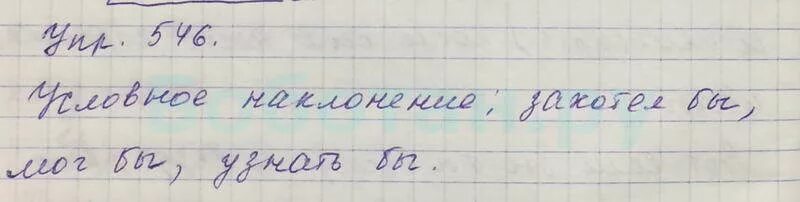 Упр. 546.
Условное наклонение: захотел бы,
мог бы, узнать бы.